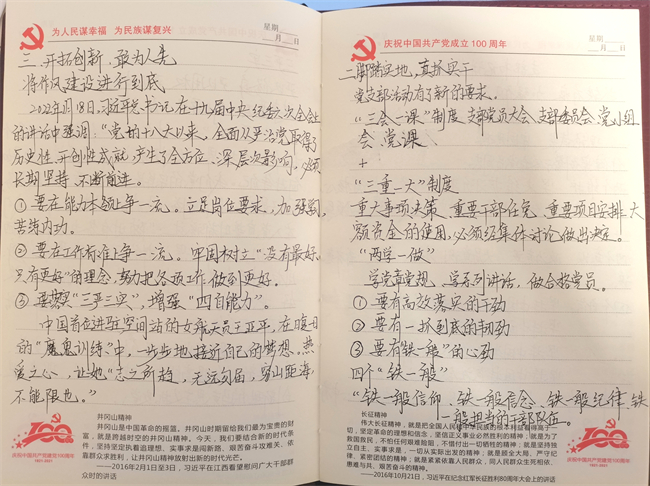 为人民谋幸福 为民族谋复兴
星期
月 日
三、开拓创新，敢为人先
将作风建设进行到底
2022年1月18日，习近平总书记在十九届中央纪委六次全会上
的讲话中强调：“党的十八大以来，全面从严治党取得了
历史性、开创性成就，产生了全方位、深层次影响，必须
长期坚持、不断前进。
①要在能力本领上争一流。立足岗位要求，加强
苦练内功。
②要在工作标准上争一流。牢固树立“没有最好，
只有更好”的理念，努力把各项工作做到更好。
③要 “三严三实”，增强“四自能力”。
中国首位进驻空间站的女航天员王亚平，在
的“魔鬼训练”中，一步步地接近自己的梦想。热
爱之心，让她“志之所趋，无远勿届，穷山距海，
不能限也。”
井冈山精神
井冈山是中国革命的摇篮。井冈山时期留给我们最为宝贵的财
富，就是跨越时空的井冈山精神。今天，我们要结合新的时代条
件，坚持坚定执着追理想、实事求是闯新路、艰苦奋斗攻难关、依
靠群众求胜利，让井冈山精神放射出新的时代光芒。
——2016年2月1日至3日，习近平在江西看望慰问广大干部群
众时的讲话
庆祝中国共产党建党100周年
1921-2021
庆祝中国共产党成立100周年
星期
月 日
二、脚踏实地，真抓实干
党支部活动有了新的要求。
“三会一课”制度 支部党员大会、支部委员会、党小组
会、党课
+
“三重一大”制度
重大事项决策、重要干部任免、重要项目安排、大
额资金的使用，必须经集体讨论做出决定。
“两学一做”
学党章党规、学系列讲话，做合格党员。
①要有高效落实的干劲
②要有一抓到底的韧劲
③要有“铁一般”的心劲
四个“铁一般”
“铁一般信仰、铁一般信念、铁一般纪律、铁
一般担当的干部队伍。
长征精神
伟大长征精神，就是把全国人民和中华民族的根本利益看得高于一
切，坚定革命的理想和信念，坚信正义事业必然胜利的精神；就是为了
救国救民，不怕任何艰难险阻，不惜付出一切牺牲的精神；就是坚持独
立自主、实事求是，一切从实际出发的精神；就是顾全大局、严守纪
律、紧密团结的精神；就是紧紧依靠人民群众，同人民群众生死相依、
患难与共、艰苦奋斗的精神。
——2016年10月21日，习近平在纪念红军长征胜利80周年大会上的讲话
庆祝中国共产党建党100周年
1921-2021